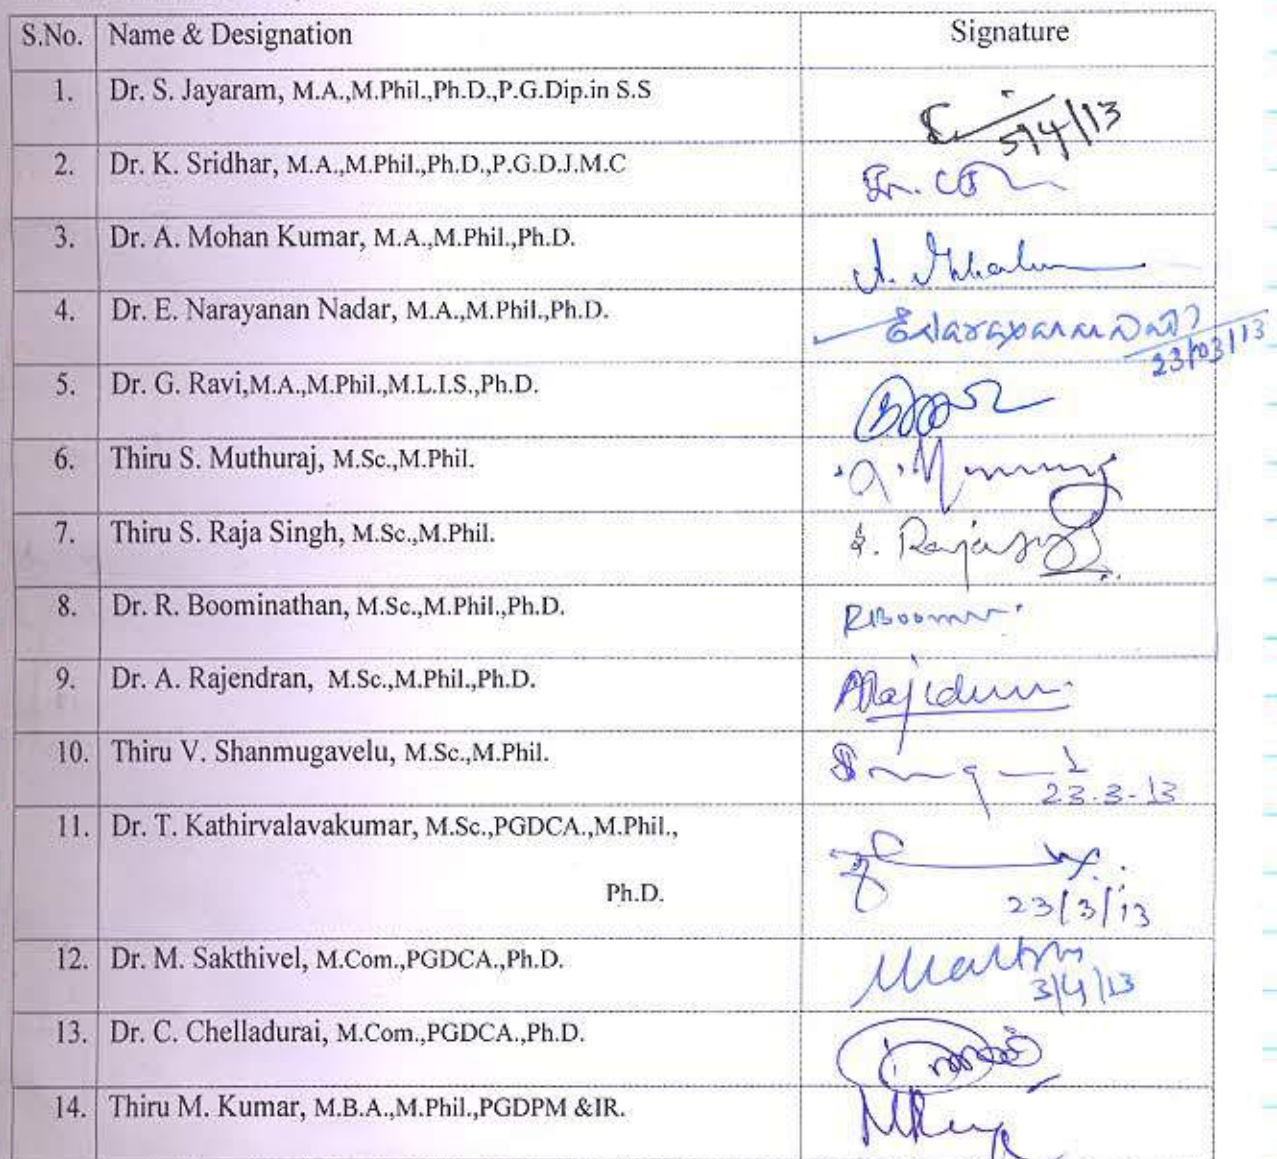 S.No. Name & Designation Signature
1. Dr. S. Jayaram, M.A.,M.Phil.,Ph.D.,P.G.Dip.in S.S
5/4/13
2. Dr. K. Sridhar, M.A.,M.Phil.,Ph.D.,P.G.D.J.M.C
3. Dr. A. Mohan Kumar, M.A.,M.Phil.,Ph.D.
4. Dr. E. Narayanan Nadar, M.A.,M.Phil.,Ph.D.
23/03/13
5. Dr. G. Ravi,M.A.,M.Phil.,M.L.I.S.,Ph.D.
6. Thiru S. Muthuraj, M.Sc.,M.Phil.
7. Thiru S. Raja Singh, M.Sc.,M.Phil.
8. Dr. R. Boominathan, M.Sc.,M.Phil.,Ph.D.
9. Dr. A. Rajendran, M.Sc.,M.Phil.,Ph.D.
10. Thiru V. Shanmugavelu, M.Sc.,M.Phil.
23.3-13
11. Dr. T. Kathirvalavakumar, M.Sc.,PGDCA.,M.Phil.,
Ph.D.
23/3/13
12. Dr. M. Sakthivel, M.Com.,PGDCA.,Ph.D.
3/4/13
13. Dr. C. Chelladurai, M.Com.,PGDCA.,Ph.D.
14. Thiru M. Kumar, M.B.A.,M.Phil.,PGDPM &IR.